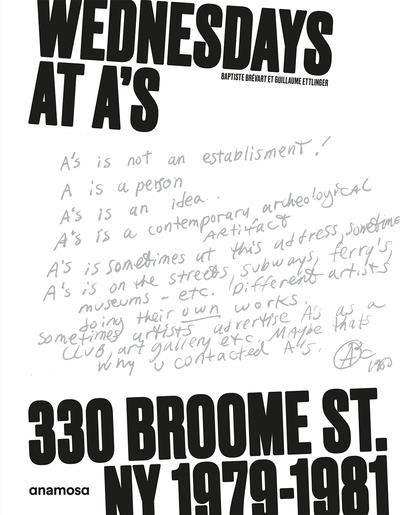 WEDNESDAYS
AT A'S
BAPTISTE BRÉVART ET GUILLAUME ETTLINGER
A's is not an establisment!
A is a person
A's is an idea.
A's is a contemporary archeological
Artifact
A's is sometimes at this address, sometime
A's is on the streets, subways, ferry's,
museums - etc. Different artists
doing their own works.
sometimes artists advertise A's as a
CLUB, art gallery etc. Maybe thats
why u contacted A's.
ABC 1980
330 BROOME ST.
anamosa
NY 1979-1981